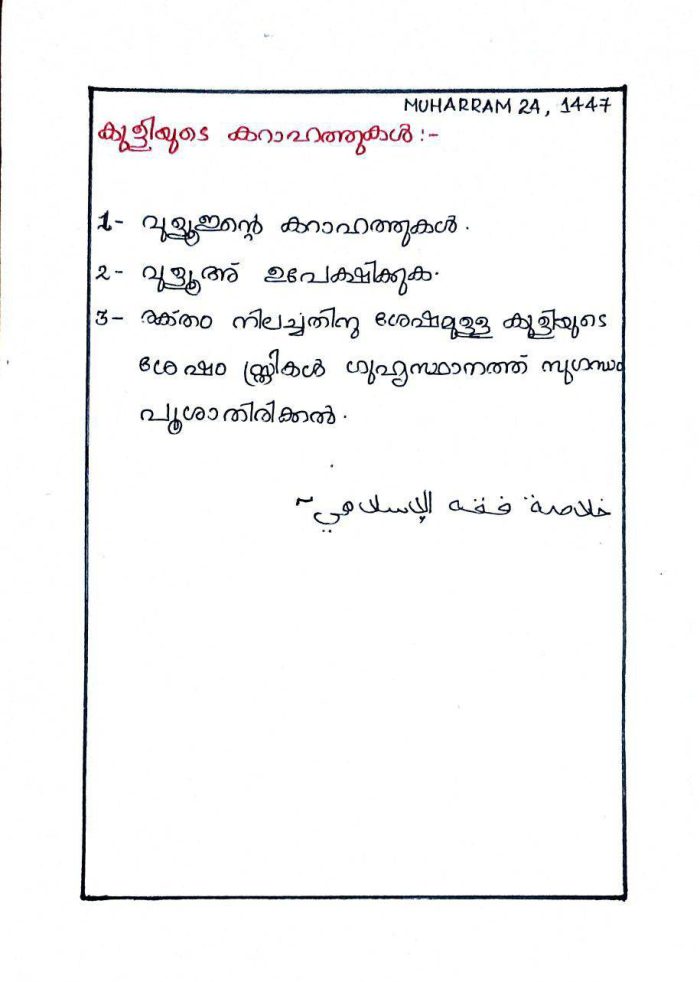 MUHARRAM 24, 1447
കുളിയുടെ കറാഹത്തുകൾ :-
1- വുളൂഇന്റെ കറാഹത്തുകൾ.
2- വുളൂഅ് ഉപേക്ഷിക്കുക.
3- രക്തം നിലച്ചതിനു ശേഷമുള്ള കുളിയുടെ
ശേഷം സ്ത്രീകൾ ഗുഹ്യസ്ഥാനത്ത് സുഗന്ധം
പൂശാതിരിക്കൽ.
خلاصة فقه الإسلامي ~